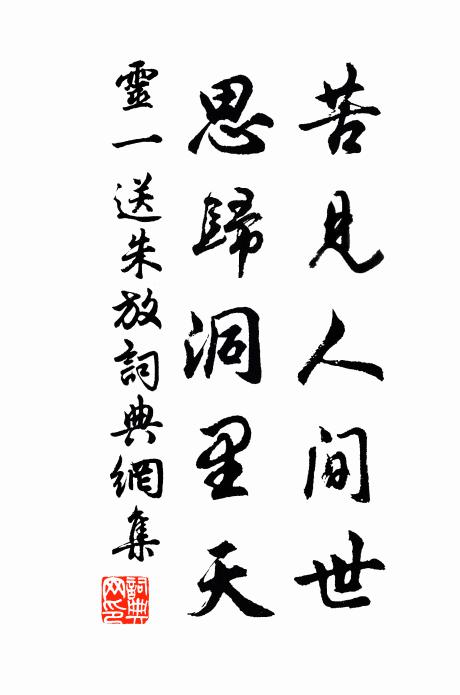 苦見人間世
思歸洞里天
靈一送朱放詞典網集
詞典網印